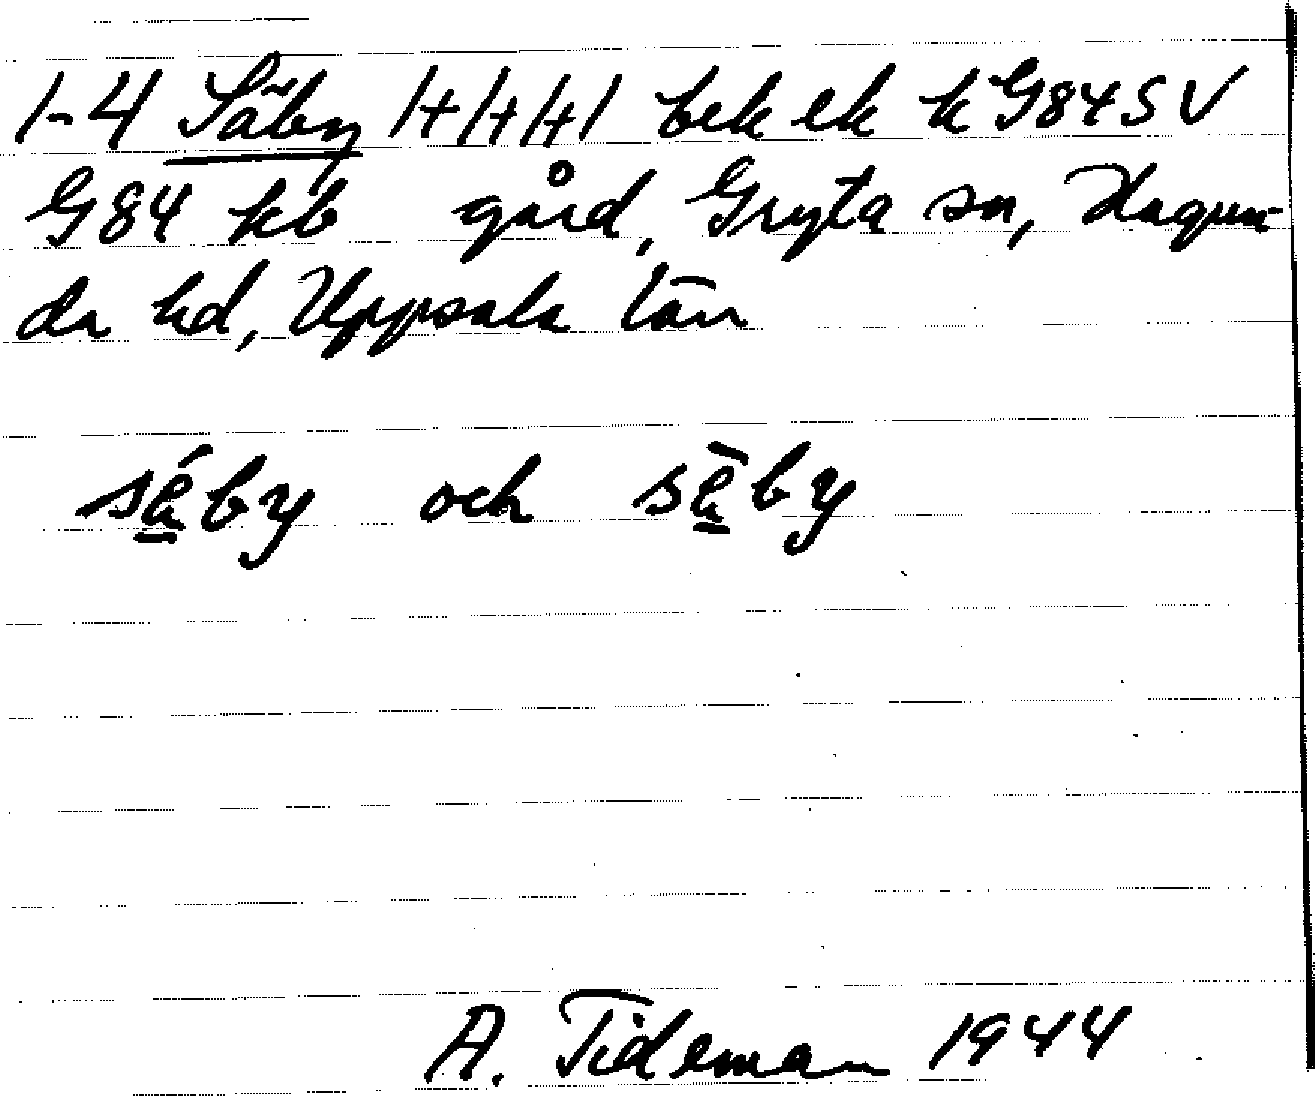 1-4 Säby 1+1+1+1 bek ek k G84SV
G84 kb gård, Gryta sn, Hagun-
da hd, Uppsala län
sä́by och sǟby
A. Tideman 1944